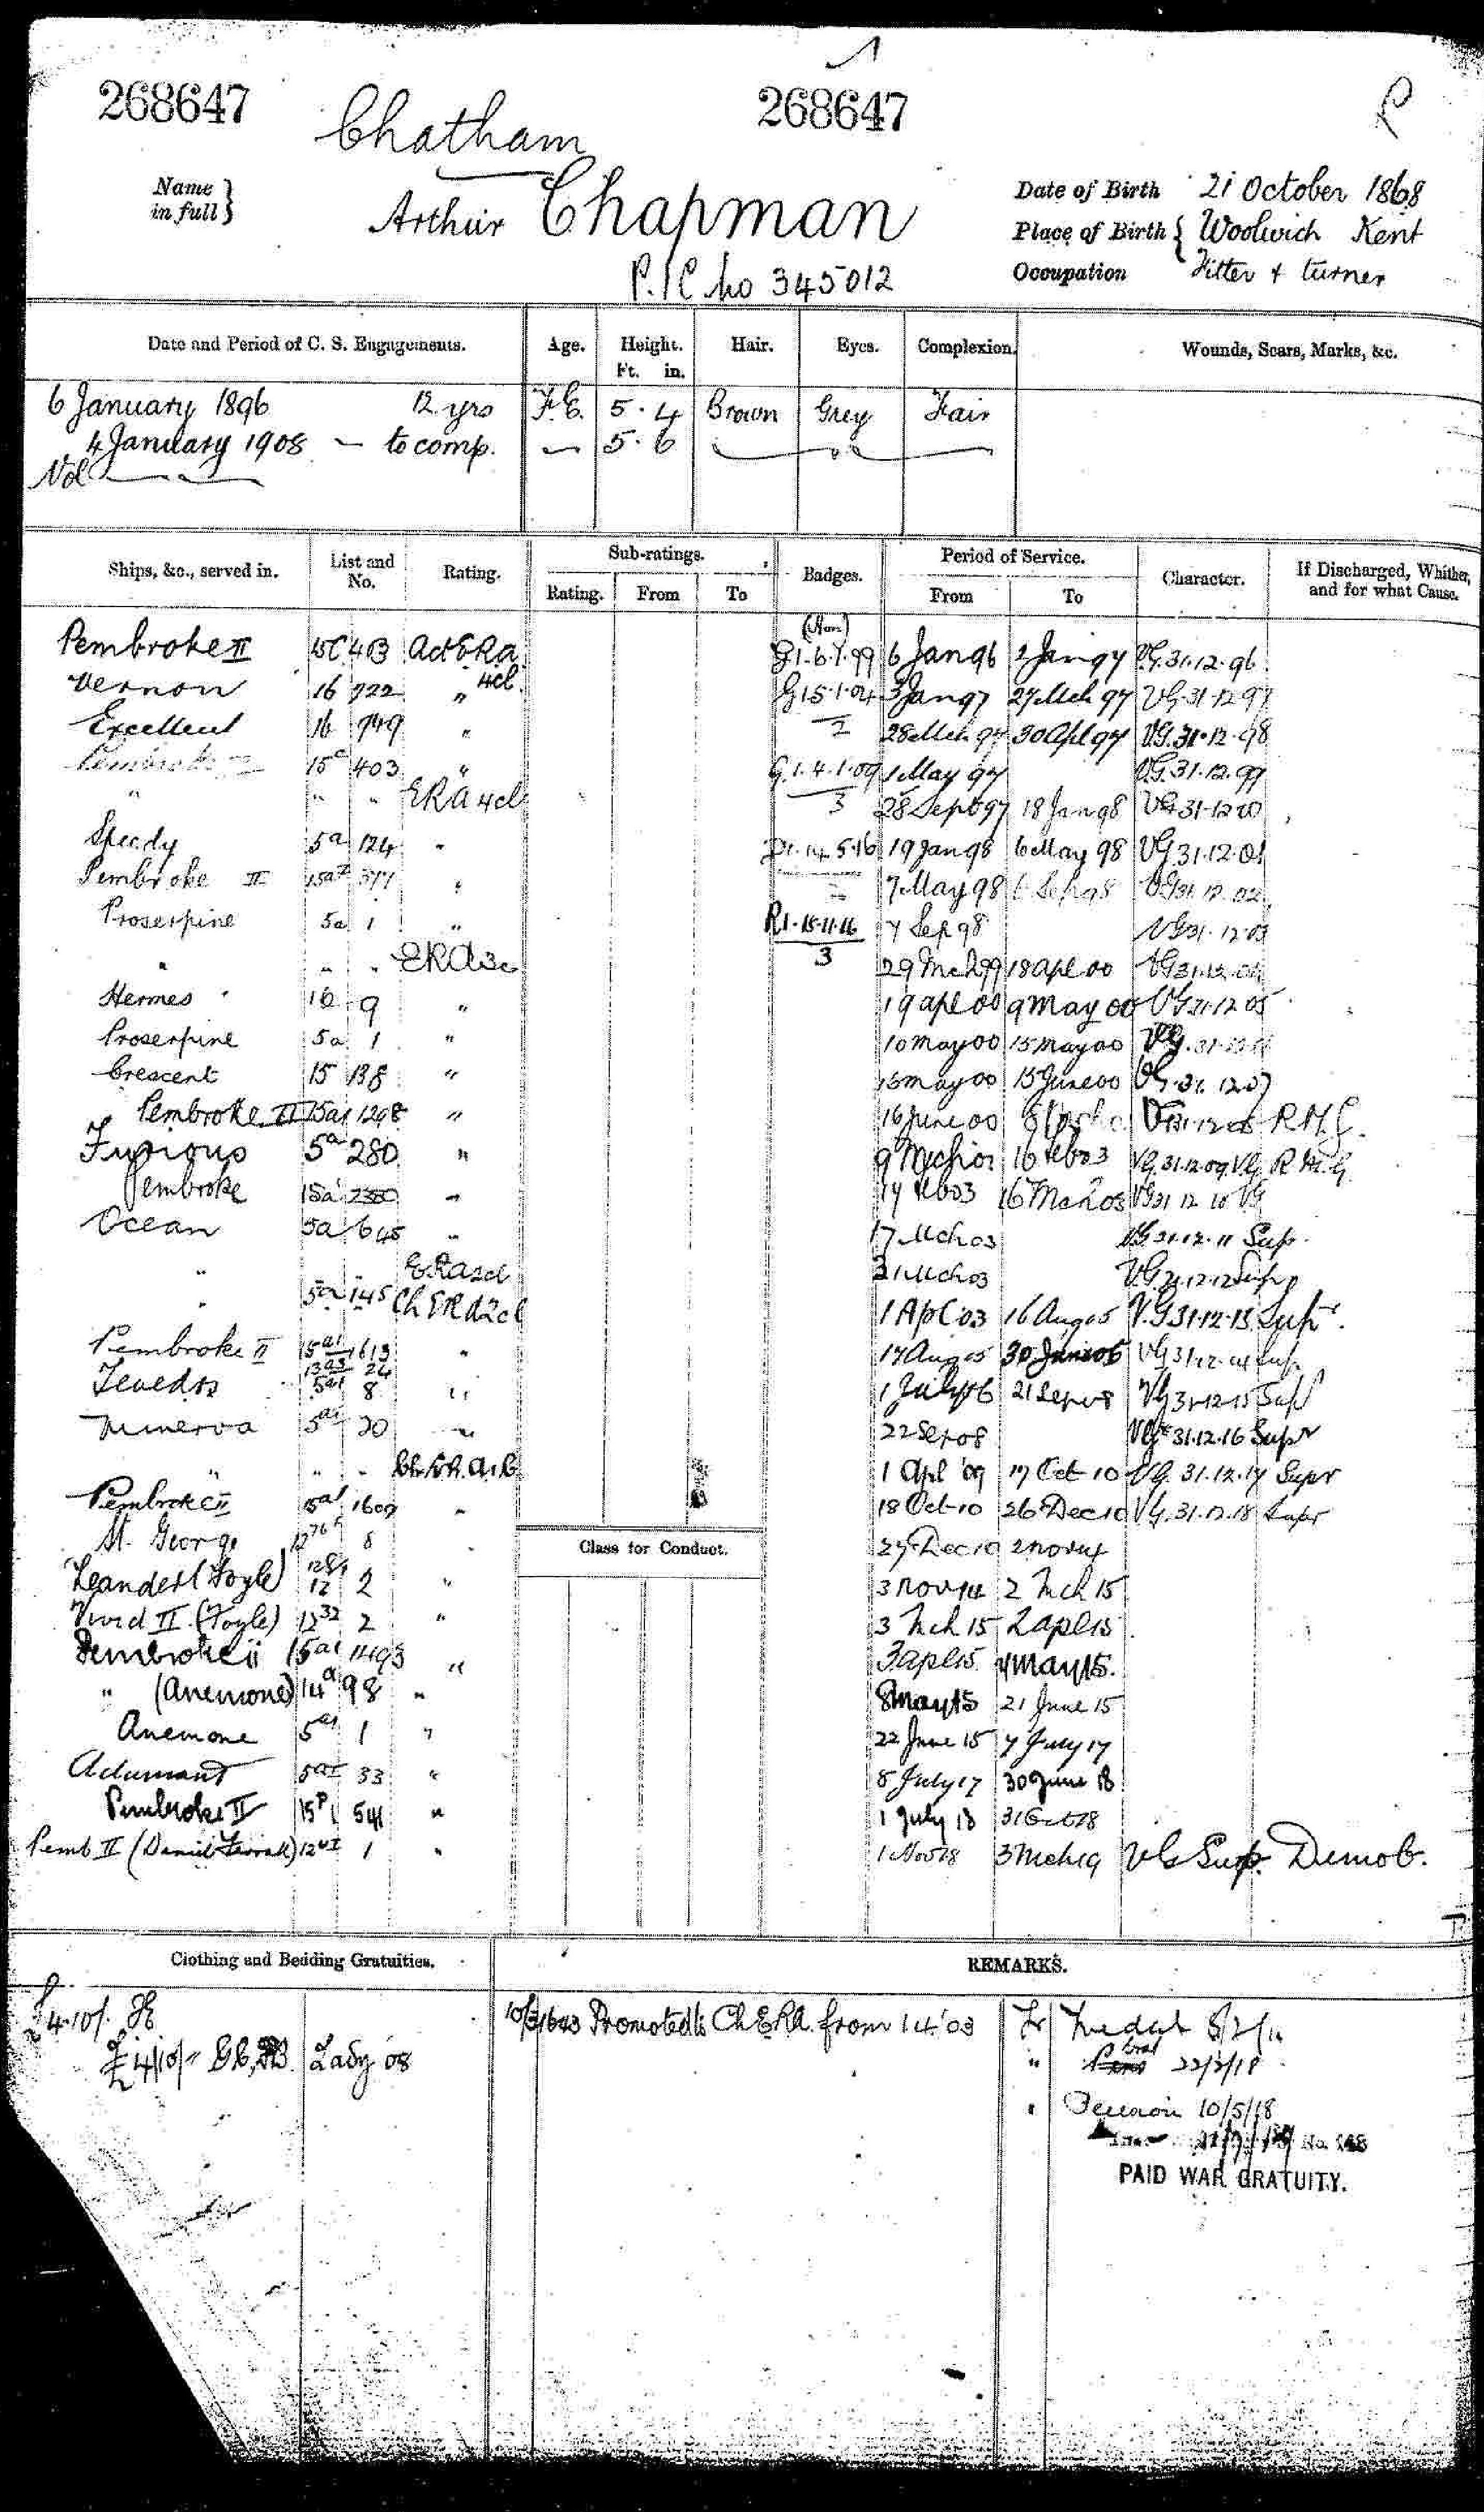 268647 Chatham 268647 P
Name in full } Arthur Chapman
Date of Birth 21 October 1868
Place of Birth { Woolwich Kent
Occupation Fitter & turner
P./C. No 345012
Date and Period of C. S. Engagements. Age. Height. Ft. in. Hair. Eyes. Complexion. Wounds, Scars, Marks, &c.
6 January 1896 12 yrs 5.4 Brown Grey Fair
4 January 1908 — to comp. — 5.6
Ships, &c., served in. List and No. Rating. Sub-ratings. Rating. From To Badges. Period of Service. From To Character. If Discharged, Whither, and for what Cause.
Pembroke II 15C 403 Act ERA 4cl. G1.6.1.99 6 Jan 96 2 Jan 97 VG.31.12.96
Vernon 16 722 " G1.5.1.04 3 Jan 97 27 Mch 97 VG.31.12.97
2
Excellent 16 749 " 28 Mch 97 30 Apl 97 VG.31.12.98
Pembroke II 15c 403 " G.1.4.1.09 1 May 97 VG.31.12.99
3
" " " ERA 4cl 28 Sept 97 18 Jan 98 VG 31.12.00
Speedy 5a 124 " 14.5.16 19 Jan 98 6 May 98 VG 31.12.01
Pembroke II 377 " 7 May 98 6 Sep 98 VG 31.12.02
Proserpine 5a 1 " R1.15.11.16 7 Sep 98 VG 31.12.03
3
" " " ERA 3c 29 Mch 99 18 Apl 00 VG 31.12.04
Hermes 16 9 " 19 Apl 00 9 May 00 VG 31.12.05
Proserpine 5a 1 " 10 May 00 15 May 00 VG.
Crescent 15 138 " 15 June 00 VG.31.12.07
Pembroke II 15a1 1298 " 16 June 00 R.M.G.
Furious 5a 280 " 16 Feb 03 VG.31.12.09 VG R.M.G.
Pembroke 15a " 17 Feb 03 16 Mch 03 VG 31 12 10 VG
Ocean 5a 645 " 17 Mch 03 VG 31.12.11 Sup.
" ERA 2cl 21 Mch 03 VG 31.12.12 Sup
" 5a 145 Ch ERA 2cl 1 Apl 03 16 Aug 05 V.G 31.12.13 Supr.
Pembroke II 15a1 1613 " 17 Aug 05 30 June 06 VG 31.12.14 Sup
24
Tenedos 5a1 8 " 1 July 06 21 Sep 08 VG 31.12.15 Sup
Minerva 5a1 20 " 22 Sep 08 VG 31.12.16 Supr
" " " Ch.E.R.A.1.C. 1 Apl '09 17 Oct 10 VG.31.12.17 Supr
Pembroke II 15a1 1609 " 18 Oct 10 26 Dec 10 VG.31.12.18 Supr
St. George 8 " 27 Dec 10 2 Nov 14
Class for Conduct.
Leander (Foyle) 12 2 " 3 Nov 14 2 Mch 15
Vivid II (Foyle) 12 32 2 " 3 Mch 15 2 Apl 15
Pembroke ii 15a1 11493 " 3 Apl 15 7 May 15.
" (Anemone) 14a 98 " 8 May 15 21 June 15
Anemone 5a1 1 " 22 June 15 7 July 17
Adamant 5a1 33 " 8 July 17 30 June 18
Pembroke II 15P 541 " 1 July 18 31 Oct 18
Pemb II (Daniel Fearall) 1 " 1 Nov 18 3 Mch 19 VG Sup. Demob.
Clothing and Bedding Gratuities. REMARKS.
£4.10/. Promoted to Ch ERA from 1.4.03
£4/10/- Lady '08
22/2/18
10/5/18
PAID WAR GRATUITY.